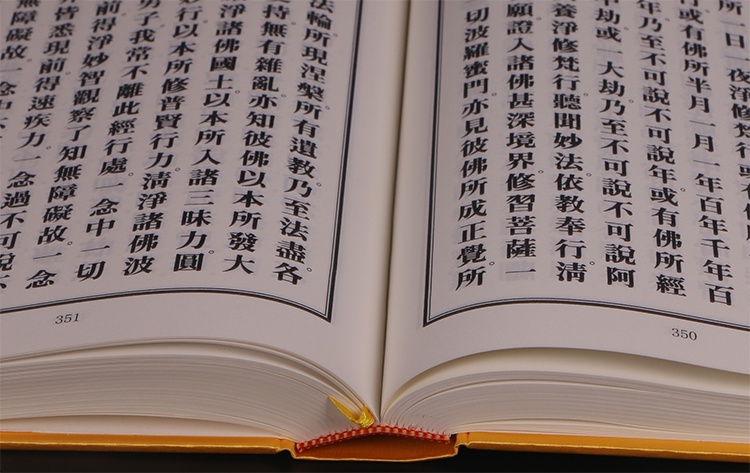 所一日一夜淨修梵行或有
行或有佛所半月一月一年百年千年百
年乃至不可說不可說年或有佛所經
半劫或一大劫乃至不可說不可說阿
養淨修梵行聽聞妙法依教奉行。清
願證入諸佛甚深境界。修習菩薩一
切波羅蜜門。亦見彼佛所成正覺。所
350
法輪所現涅槃。所有遺教乃至法盡。各
持無有雜亂。亦知彼佛以本所發大
淨諸佛國土。以本所入諸三昧力圓
妙行。以本所修普賢行力清淨諸佛波
男子。我常不離此經行處。一念中一切
前。得淨妙智觀察了知無障礙故。一念
皆悉現前。得速疾力。一念過不可說不
無障礙故。一念中不
351